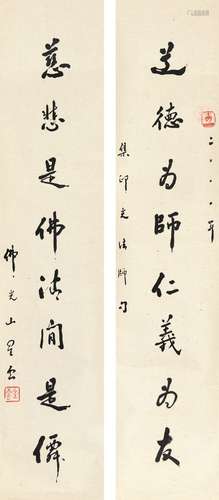 道德為師仁義為友
二〇〇〇年
集印光法師句
慈悲是佛清閒是僊
佛光山星雲